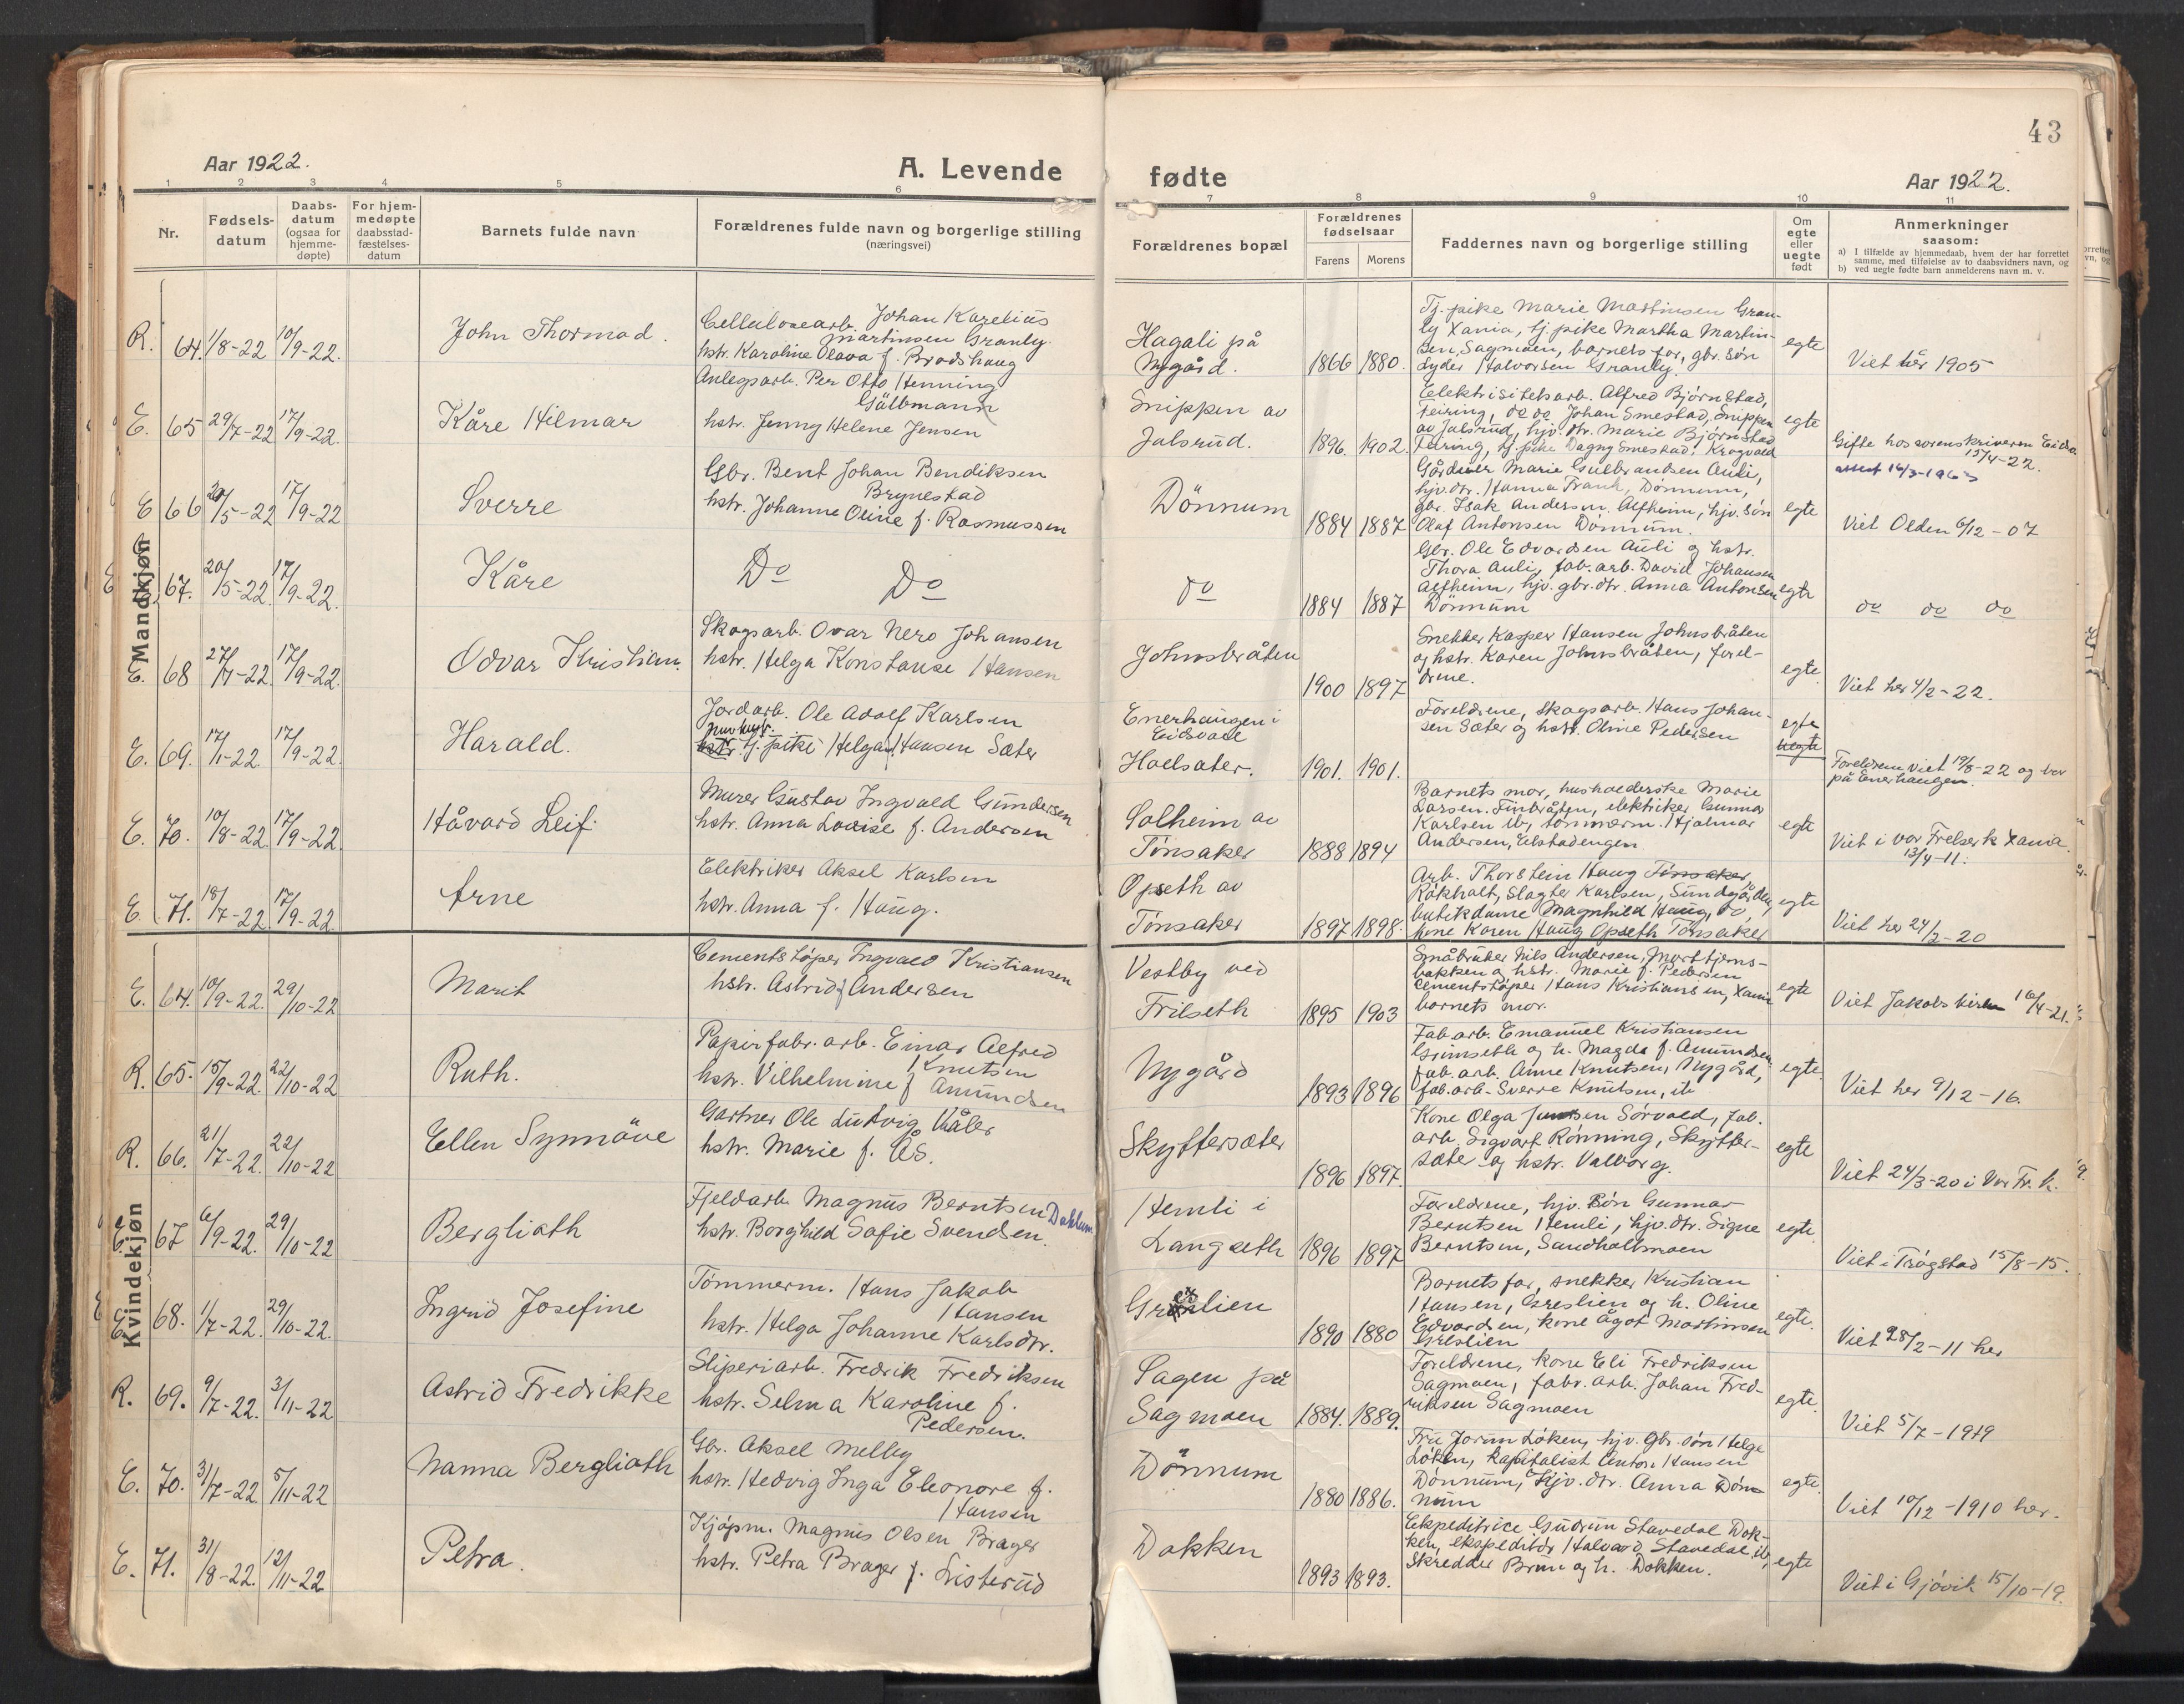 43
Aar 1922.
A. Levende
fødte
Aar 1922.
1 2 3 4 5 6 7 8 9 10 11
Nr.
Fødsels-
datum
Daabs-
datum
(ogsaa for
hjemme-
døpte)
For hjem-
medøpte
daabsstad-
fæstelses-
datum
Barnets fulde navn
Forældrenes fulde navn og borgerlige stilling
(næringsvei)
Forældrenes bopæl
Forældrenes
fødselsaar
Farens Morens
Faddernes navn og borgerlige stilling
Om
egte
eller
uegte
født
Anmerkninger
saasom:
a) I tilfælde av hjemmedaab, hvem der har forrettet
samme, med tilføielse av to daabsvidners navn, og
b) ved uegte fødte barn anmelderens navn m. v.
Mandkjøn
R. 64. 1/8-22 10/9-22.
John Thormod.
Cellulosearb. Johan Karelius
Martinsen Granly
hstr. Karoline Olava f. Brodshaug
Hagali på
Nygård.
1866 1880.
Tj. pike Marie Martinsen Gran-
ly Xania, tj. pike Martha Martin-
sen, Sagmoen, barnets far, gbr. søn
Lyder Halvorsen Granly.
egte
Viet her 1905
E. 65 29/7-22 17/9-22.
Kåre Hilmar
Anlegsarb. Per Otto Henning
Gällmann
hstr. Jenny Helene Jensen
Snippen av
Julsrud.
1896. 1902.
Elektrisitetsarb. Alfred Bjørnstad,
Feiring, do do Johan Smestad, Snippen
av Julsrud, hjv. dtr. Marie Bjørnstad
Feiring, tj. pike Dagny Smestad, Krogvald
egte
Gifte hos sorenskriveren Eidsv.
15/4-22.
attest 16/3-1963
E 66 20/5-22 17/9-22
Sverre
Gbr. Bent Johan Bendiksen
Brynestad
hstr. Johanne Oline f. Rasmussen
Dönnum
1884 1887
Gårdeier Marie Gulbrandsen Auli,
hjv. dtr. Hanna Frank, Dönnum,
gbr. Isak Andersen, Alfheim, hjv. søn
Olaf Antonsen Dönnum.
egte
Viet Olden 6/12-07
E 67. 20/5-22. 17/9-22.
Kåre
Do Do
do
1884 1887
Gbr. Ole Edvardsen Auli og hstr.
Thora Auli, fab. arb. David Johansen
Alfheim, hjv. gbr. dtr. Anna Antonsen
Dönnum
egte
do do do
E. 68 27/7-22. 17/9-22.
Odvar Kristian.
Skogsarb. Ovar Nero Johansen
hstr. Helga Konstanse Hansen
Johnsbråten
1900 1897
Snekker Kasper Hansen Johnsbråten
og hstr. Karen Johnsbråten, forel-
drene.
egte
Viet her 4/2-22.
E. 69. 17/1-22. 17/9-22.
Harald.
Jordarb. Ole Adolf Karlsen
hstr. tj. pike Helga Hansen Sæter
Enerhaugen i
Eidsvold
Hoelsæter.
1901. 1901.
Foreldrene, skogsarb. Hans Johan-
sen Sæter og hstr. Oline Pedersen
egte
uegte
Foreldrene viet 19/8-22 og bor
på Enerhaugen.
E. 70. 10/8-22. 17/9-22.
Håvard Leif.
Murer Gustav Ingvald Gundersen
hstr. Anna Lovise f. Andersen
Solheim av
Tönsaker
1888 1894
Barnets mor, husholderske Marie
Larsen. Finbråten, elektriker Gunnar
Karlsen ib, tömmerm. Hjalmar
Andersen, Eilstadengen
egte
Viet i vor Frelser k Xania.
13/4-11.
E. 71. 18/7-22. 17/9-22.
Arne
Elektriker Aksel Karlsen
hstr. Anna f. Haug.
Opseth av
Tönsaker
1897 1898.
Arb. Thorstein Haug Tönsaker,
Råkholt, Slagter Karlsen, Sundgården,
butikdame Magnhild Haug, do,
kone Karen Haug Opseth Tönsaker
egte
Viet her 24/2-20
Kvindekjøn
E. 64. 10/9-22. 29/10-22
Marit
Cementstøper Ingvald Kristiansen
hstr. Astrid f. Andersen
Vestby ved
Frilseth
1895 1903
Småbruker Nils Andersen, Mort tjerns-
bakken og hstr. Marie f. Pedersen
Cementstøper Hans Kristiansen, Xania
barnets mor.
egte
Viet Jakobs kirken 16/4-21.
R. 65. 15/9-22. 22/10-22
Ruth.
Papirfabr. arb. Einar Alfred
Knutsen
hstr. Vilhelmine f Amundsen
Nygård
1893 1896
Fab. arb. Emanuel Kristiansen
Grimseth og h. Magda f. Amundsen
fab. arb. Anne Knutsen, Nygård,
fab. arb. Sverre Knutsen, ib
egte
Viet her 9/12-16.
R. 66. 21/7-22. 22/10-22
Ellen Synnöve
Gartner Ole Ludvig Kåler
hstr. Marie f. Ås.
Skyttersæter
1896 1897.
Kone Olga Jensen Sörvald, fab.
arb. Sigvart Rönning, Skytter-
sæter og hstr. Valborg.
egte
Viet 24/3-20 i Vor Fr. k.
E. 67 6/9-22. 29/10-22
Bergliath
Fjeldarb. Magnus Berntsen Dahlum
hstr. Borghild Sofie Svendsen.
Hemli i
Langseth
1896 1897
Foreldrene, hjv. Søn Gunnar
Berntsen Hemli, hjv. dtr. Signe
Berntsen, Sandholtmoen
egte
Viet i Trögstad 15/8-15.
E. 68. 1/7-22. 29/10-22.
Ingrid Josefine
Tömmerm. Hans Jakob
Hansen
hstr. Helga Johanne Karlsdtr.
Greslien
1890 1880
Barnets far, snekker Kristian
Hansen, Greslien og h. Oline
Edvardsen, kone Ågot Martinsen
Greslien
egte.
Viet 28/2-11 her
R. 69. 9/7-22. 3/11-22
Astrid Fredrikke
Sliperiarb. Fredrik Fredriksen
hstr. Selma Karoline f.
Pedersen.
Sagen på
Sagmoen
1884. 1889.
Foreldrene, kone Eli Fredriksen
Sagmoen, fabr. arb. Johan Fred-
riksen Sagmoen
egte.
Viet 5/7-1919
E. 70. 31/7-22 5/11-22
Nanna Bergliath
Gbr. Aksel Melby
hstr. Hedvig Inga Eleonore f.
Hansen
Dönnum
1880 1886.
Fru Jorun Löken, hjv. gbr. søn Helge
Löken, Kapitalist Anton Hansen
Dönnum, hjv. dtr. Anna Dön-
num
egte.
Viet 10/12-1910 her.
E. 71. 31/8-22. 12/11-22
Petra.
Kjöpm. Magnus Olsen Brager
hstr. Petra Brager f. Listerud
Dokken
1893 1893.
Ekspeditrice Gudrun Stavedal Dok-
ken, ekspeditör Halvard Stavedal ib,
Skredder Brun og h. Dokken.
egte
Viet i Gjövik 15/10-19.